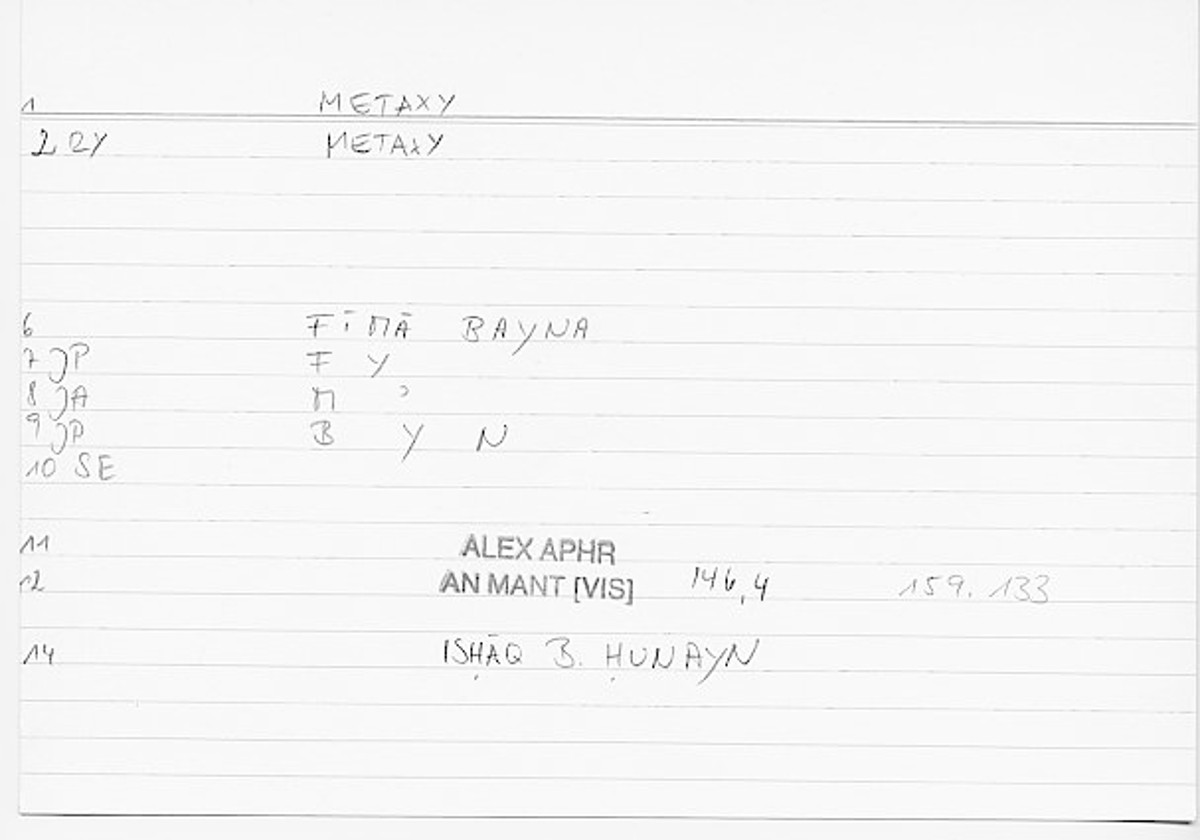 1 METAXY
2 QY METAXY
6 FĪMĀ BAYNA
7 JP F Y
8 JA M ʾ
9 JP B Y N
10 SE
11 ALEX APHR
12 AN MANT [VIS] 146,4 159.133
14 ISḤĀQ B. ḤUNAYN